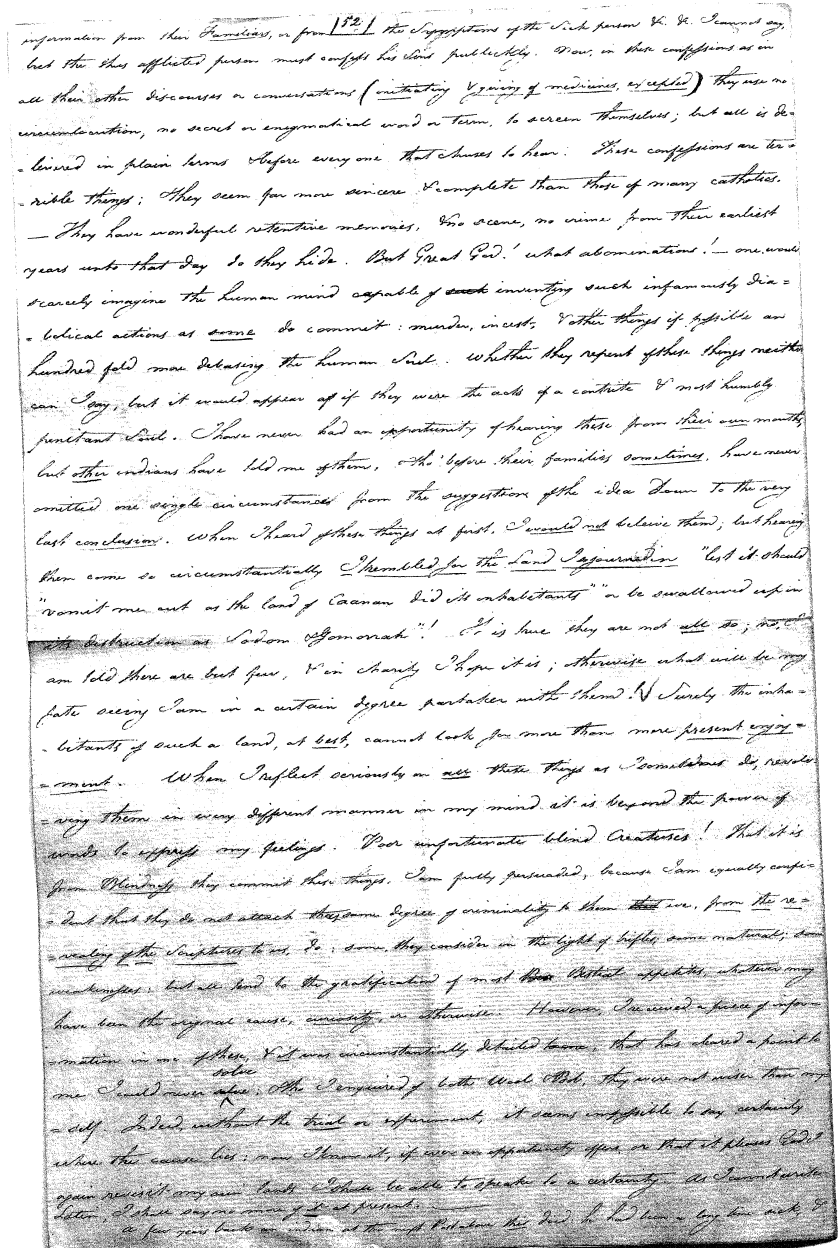 |52|
information from their Familiars, or from the Symptoms of the Sick person &c. &c. I cannot say,
but the thus afflicted person must confess his Sins publickly. Now, in these confessions as in
all their other discourses or conversations (initiating & giving of medicines, excepted) they use no
circumlocution, no secret or enigmatical word or term, to screen themselves; but all is de=
=livered in plain terms & before every one that chuses to hear. These confessions are ter=
=rible things; they seem far more sincere & complete than those of many catholics.
— They have wonderful retentive memories, & no scene, no crime from their earliest
years unto that day do they hide. But Great God! what abominations! — one would
scarcely imagine the human mind capable of such inventing such infamously dia=
=bolical actions as some do commit: murder, incest, & other things if possible an
hundred fold more debasing the human Soul. Whether they repent of these things neither
can I say, but it would appear as if they were the acts of a contrite & most humbly
penitant Soul. I have never had an opportunity of hearing these from their own mouths
but other indians have told me of them, & tho' before their families sometimes, have never
omitted one single circumstances from the suggestion of the idea down to the very
last conclusion. When I heard of these things at first, I would not beleive them; but hearing
them come so circumstantially I trembled for the Land I sojourned in "lest it should
"vomit me out as the land of Caanan did its inhabitants" "or be swallowed up in
its destruction as Sodom & Gomorrah"! It is true they are not all so; no, I
am told there are but few, & in charity I hope it is; otherwise what will be my
fate seeing I am in a certain degree partaker with them! Surely the inha=
=bitants of such a land, at best, cannot look for more than mere present enjoy=
=ment. When I reflect seriously on all these things as I sometimes do, revol=
=ving them in every different manner in my mind it is beyond the power of
words to express my feelings. Poor unfortunate blind Creatures! That it is
from Blindness they commit these things, I am fully persuaded, because I am equally confi=
=dent that they do not attach the same degree of criminality to them that we, from the re=
=vealing of the Scriptures to us, do: some, they consider in the light of trifles, some natural; some
weaknesses: but all tend to the gratification of most Bestial appetites, whatever may
have been the original cause, curiosity, or otherwise. However, I received a piece of infor=
=mation in one of these, & it was circumstantially detailed, that has cleared a point to
me I could never solve; tho' I enquired of both, they were not wiser than my=
=self. Indeed, without the trial or experiment, it seems impossible to say certainly
where the cause lies: now I know it, if ever an opportunity offers, or that it pleases God I
again revisit my own lands I shall be able to speak to a certainty. As I cannot write
Latin, I shall say no more of it at present.
A few years back an indian at the next Post above this died, he had been a long time sick, &